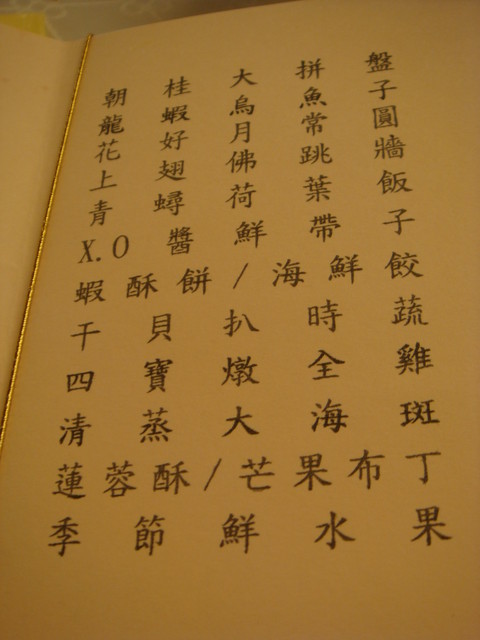 朝桂大拼盤
龍蝦烏魚子
花好月常圓
上翅佛跳牆
青蟳荷葉飯
X.O醬鮮帶子
蝦酥餅/海鮮餃
干貝扒時蔬
四寶燉全雞
清蒸大海斑
蓮蓉酥/芒果布丁
季節鮮水果